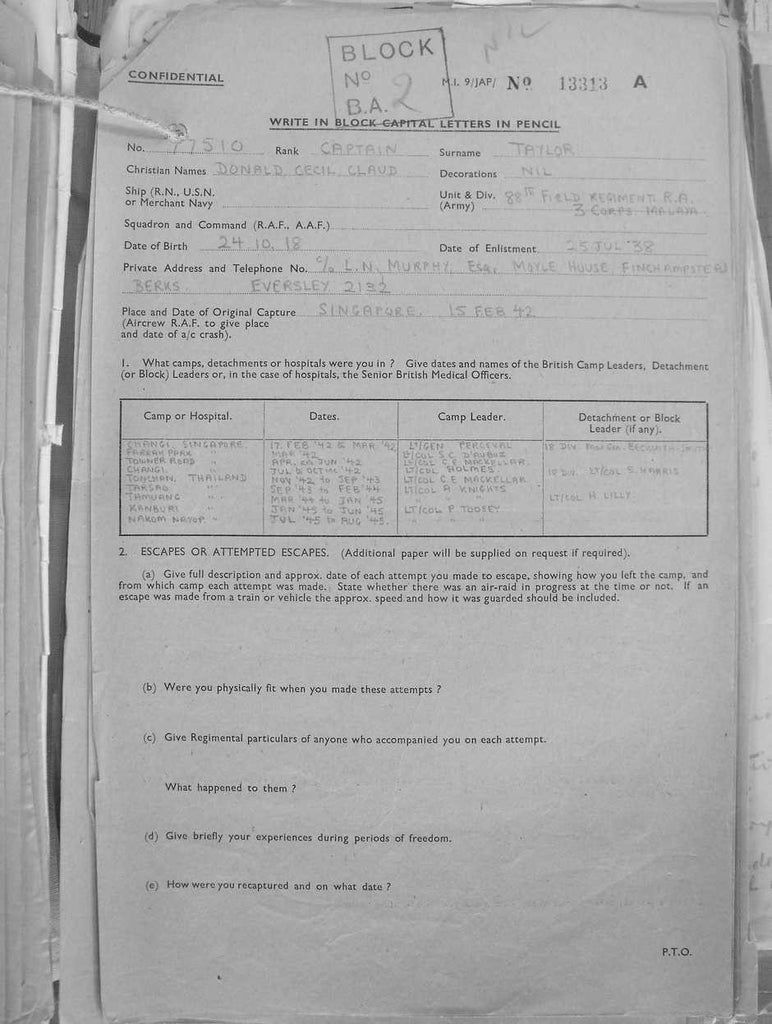 NIL
BLOCK
CONFIDENTIAL
Nº 2
M.I. 9/JAP/ Nº 13313 A
B.A.
WRITE IN BLOCK CAPITAL LETTERS IN PENCIL
No. 77510 Rank CAPTAIN Surname TAYLOR
Christian Names DONALD CECIL CLAUD Decorations NIL
Ship (R.N., U.S.N. or Merchant Navy
Unit & Div. (Army) 88TH FIELD REGIMENT R.A.
3 CORPS MALAYA.
Squadron and Command (R.A.F., A.A.F.)
Date of Birth 24 10. 18 Date of Enlistment 25 JUL '38
Private Address and Telephone No. C/o L.N. MURPHY, ESQ, MOYLE HOUSE, FINCHAMPSTEAD
BERKS. EVERSLEY 2132
Place and Date of Original Capture SINGAPORE. 15 FEB 42
(Aircrew R.A.F. to give place
and date of a/c crash).
1. What camps, detachments or hospitals were you in ? Give dates and names of the British Camp Leaders, Detachment
(or Block) Leaders or, in the case of hospitals, the Senior British Medical Officers.
Camp or Hospital. Dates. Camp Leader. Detachment or Block Leader (if any).
CHANGI, SINGAPORE. 17. FEB '42 to MAR '42 LT/GEN PERCIVAL 18 DIV
FARRER PARK " MAR '42 LT/COL S.C. D'AUBUZ
TOWNER ROAD " APR. to JUN '42 LT/COL C E MACKELLAR
CHANGI. JUL to OCT '42 LT/COL HOLMES. 18 DIV. LT/COL S. HARRIS
TONCHAN, THAILAND NOV '42 to SEP '43 LT/COL C E MACKELLAR
TARSAO " SEP '43 to FEB '44 LT/COL A KNIGHTS
TAMUANG " MAR '44 to JAN '45 " LT/COL H. LILLY.
KANBURI " JAN '45 to JUN '45 LT/COL P TOOSEY
NAKOM NAYOP " JUL '45 to AUG '45. " "
2. ESCAPES OR ATTEMPTED ESCAPES. (Additional paper will be supplied on request if required).
(a) Give full description and approx. date of each attempt you made to escape, showing how you left the camp, and
from which camp each attempt was made. State whether there was an air-raid in progress at the time or not. If an
escape was made from a train or vehicle the approx. speed and how it was guarded should be included.
(b) Were you physically fit when you made these attempts ?
(c) Give Regimental particulars of anyone who accompanied you on each attempt.
What happened to them ?
(d) Give briefly your experiences during periods of freedom.
(e) How were you recaptured and on what date ?
P.T.O.